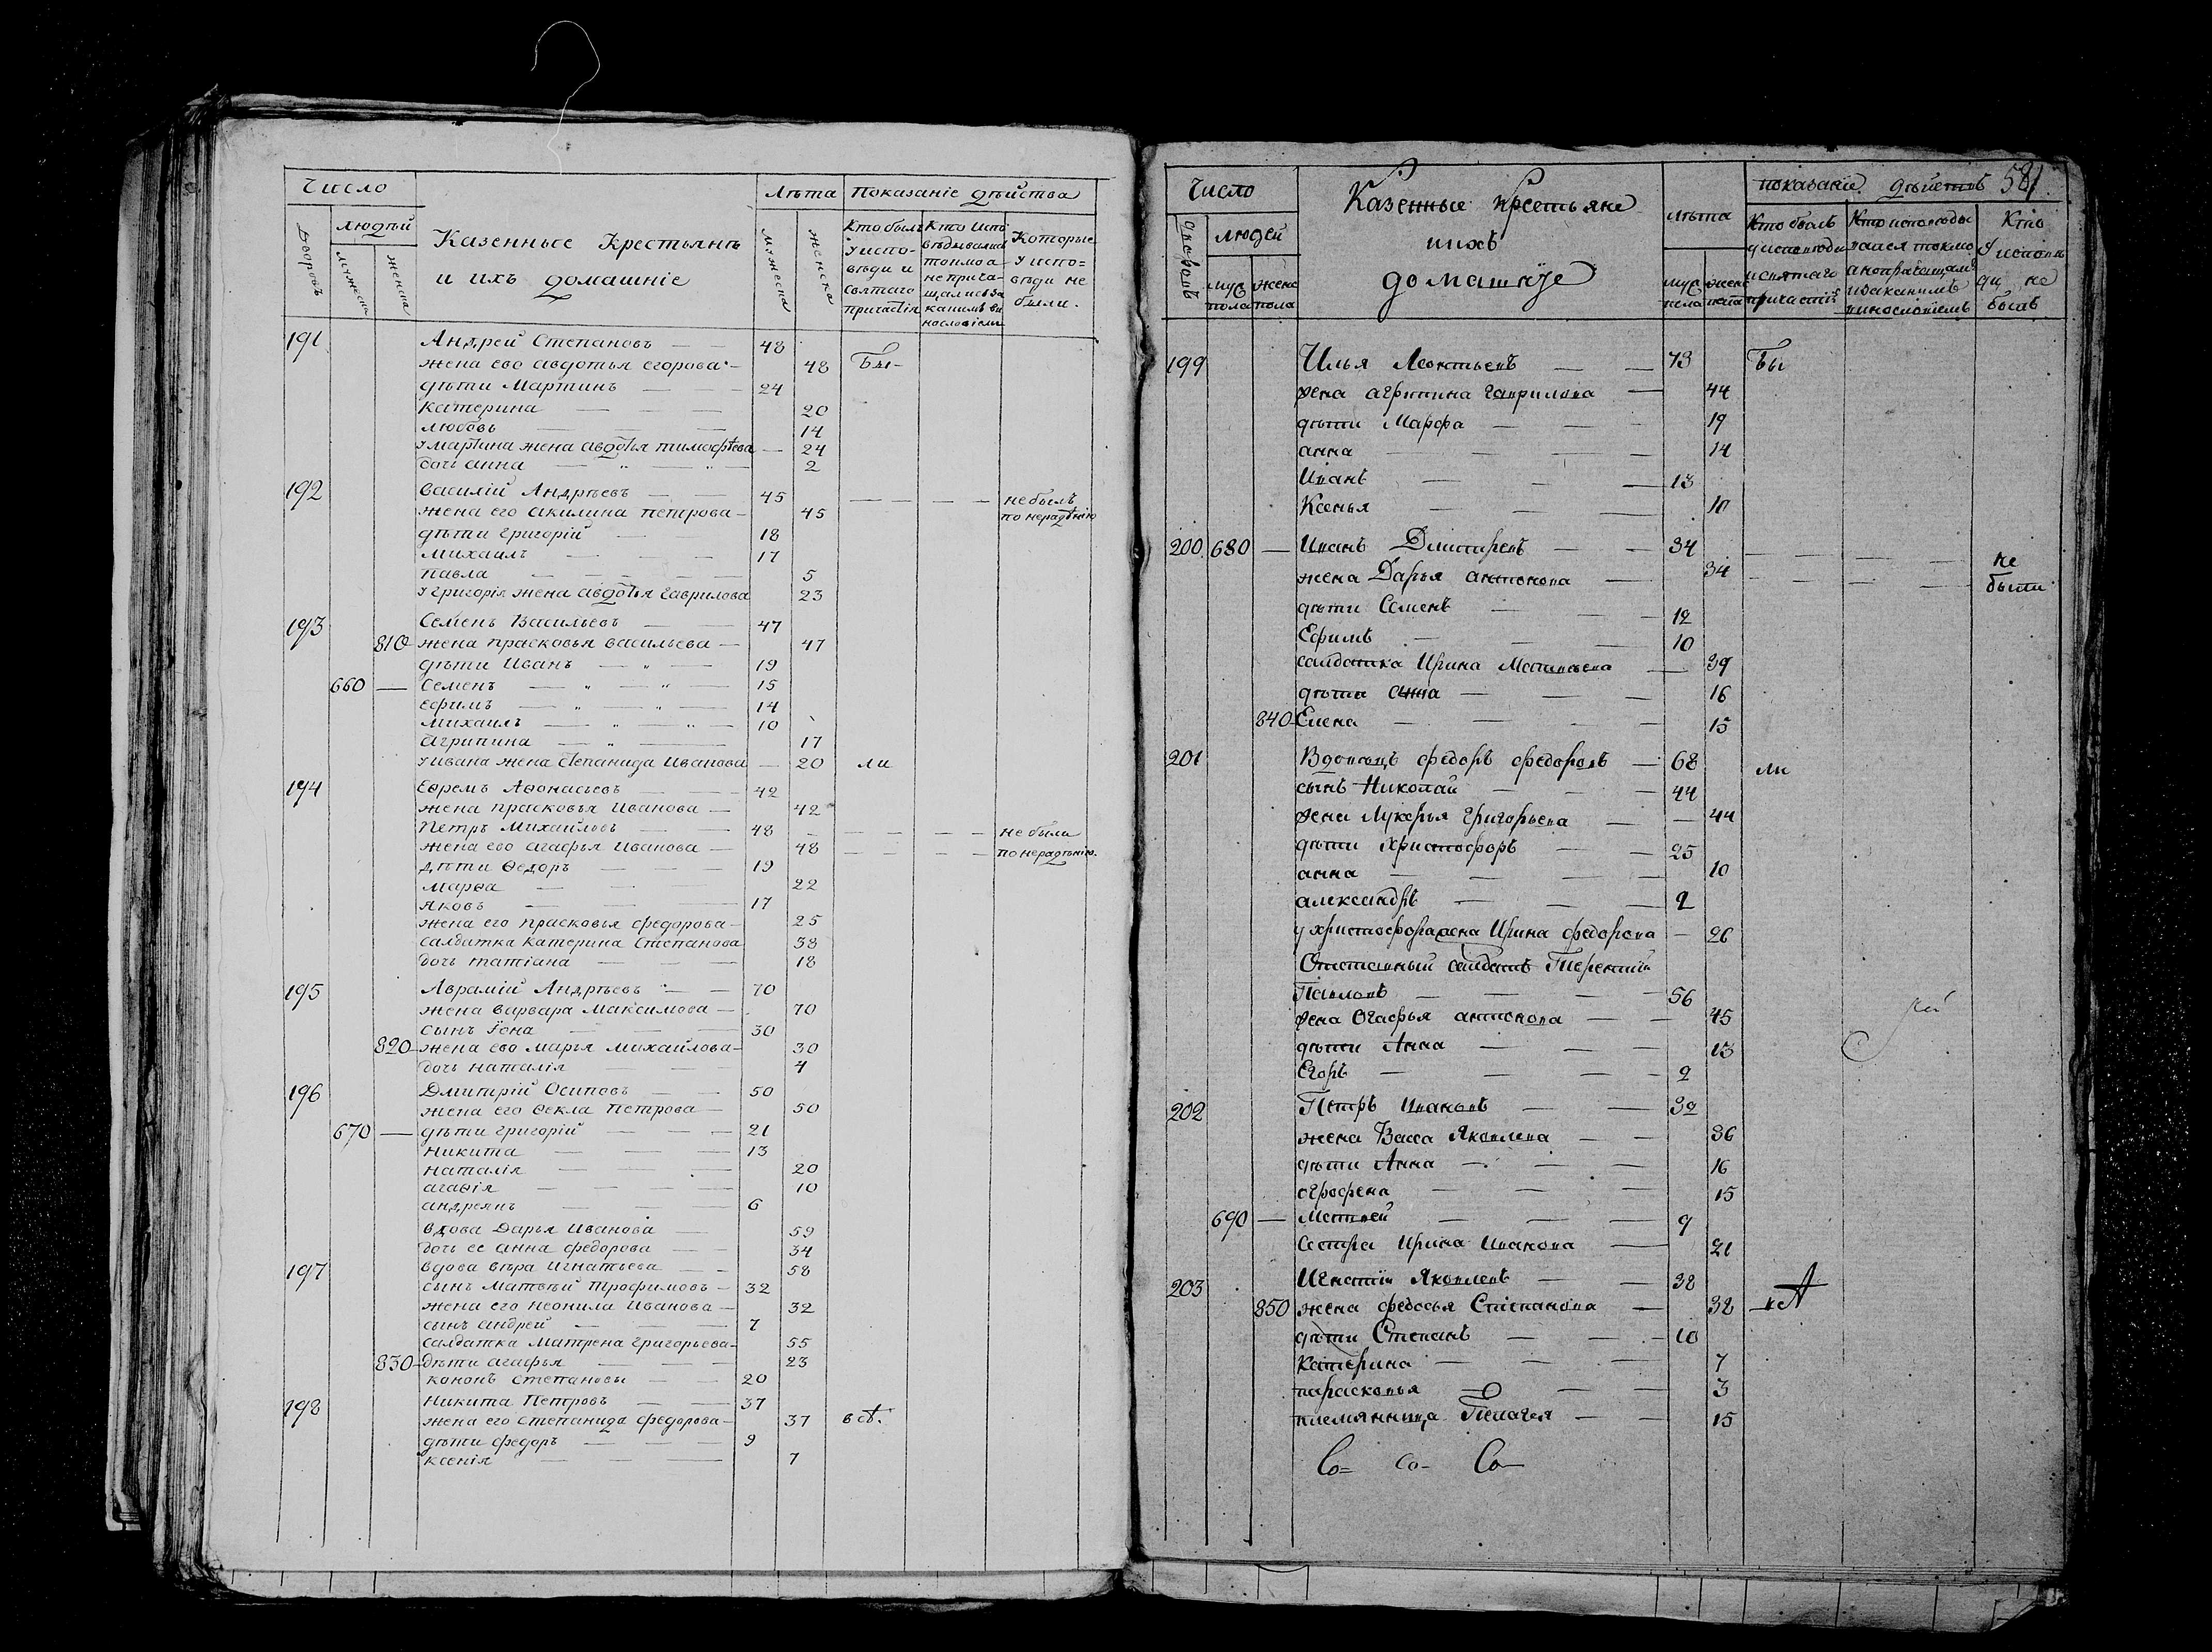 Число
Лѣта показаніе дѣйства
Дворовъ
людѣй
мужеска
женска
Казенные Крестьянѣ
и ихъ домашніе
мужеска
женска
Кто былъ у исповѣди и святаго причастія
Кто исповѣдывался токмо а не причащались за какимъ винословіемъ
Которые у исповѣди не были.
191 Андрей Степановъ — — 48
жена ево авдотья егорова — 48 Бы-
дѣти Мартинъ — — 24
катерина — — — 20
любовь — — — 14
у мартина жена авдотья тимофѣева — 24
дочь анна — „ — „ — 2
192 василій Андрѣевъ — — 45 — — — — небылъ
жена его акилина петрова — 45 по нерадѣнію
дѣти григорій — — 18
михаилъ — — — 17
павла — — — — 5
у григорія жена авдотья гаврилова 23
193 Семенъ Васильевъ — — 47
810 жена прасковья васильева — 47
дѣти Иванъ — „ — 19
660 — Семенъ — „ — „ — 15
ефимъ — „ — „ — 14
михаилъ — „ — „ — 10
агрипина — „ — 17
у ивана жена степанида иванова — 20 ли
194 Ефремъ Афонасьевъ — — 42
жена прасковья иванова — 42
Петръ Михайловъ — — 48 — — — — не были
жена ево агафья иванова — 48 — — — — по нерадѣнію.
дѣти Ѳедоръ — — — 19
марѳа — — — 22
яковъ — — — 17
жена его прасковья федорова — 25
салдатка катерина степанова 38
дочь татіана — — — 18
195 Аврамій Андрѣевъ — — 70
жена варвара максимова — 70
сынъ Іона — — — 30
820 — жена ево марья михаилова — 30
дочь наталія — — 4
196 Дмитрій Осиповъ — — 50
жена его Ѳекла петрова — 50
670 — дѣти григорій — — — 21
никита — — — 13
наталія — — — 20
агаѳія — — — — 10
андреянъ — — — 6
вдова Дарья иванова — 59
дочь ее анна федорова — — 34
197 вдова вѣра игнатьева — — 58
сынъ матвѣй трофимовъ — 32
жена его неонила иванова — 32
сынъ андрей — — — 7
салдатка матрена григорьева — 55
830 — дѣти агафья — — — 23
кононъ степановы — — 20
198 Никита Петровъ — — 37
жена его степанида федорова — 37 всѣ.
дѣти федоръ — — — 9
ксенія — — — 7
Число
Казенные крестьяне
ихъ
домашнїе
лѣта
показание дѣйствъ 581
людей
муж пола
жене пола
муж пола
жене пола
Кто былъ
у исповѣди
исвятаго
причастїя
Кто исповѣды
вался токмо
Кто
у исповѣ
ди не
былъ
199 Илья Леонтьевъ — — 73 Бы
жена агрипина гаврилова — 44
дѣти Марфа — — — 19
анна — — — — 14
Иванъ — — — 13
Ксенья — — — 10
200 680 — Иванъ Дмитревъ — — 34 — — — — не
жена Дарья антонова — 34 — — — — были
дѣти Семенъ — — 12
Ефимъ — — 10
салдатка Ирина Матвѣева — 39
дѣти анна — — — 16
840 Елена — — — — 15
201 Вдовецъ федоръ федоровъ — 68 ли
сынъ Николай — — — 44
жена Лукерья Григорьева — — 44
дѣти христофоръ — — 25
анна — — — — 10
александръ — — — 2
у христофора жена Ирина федорова — 26
Отставный салдатъ Терентий
Павловъ — — — — 56
жена Огафья антонова — — 45
дѣти Анна — — — 13
Егоръ — — — — 2
202 Петръ Ивановъ — — 32
жена Васса Яковлева — — 36
дѣти Анна — — — 16
огрофена — — — 15
690 — Матвей — — — 9
Сестра Ирина Иванова — 21
203 Игнатїи Яковлевъ — — 38
850 жена федосья Степанова — 32
дѣти Степанъ — — — 10
катерина — — — 7
парасковья — — — 3
племянница Пелагея — — 15